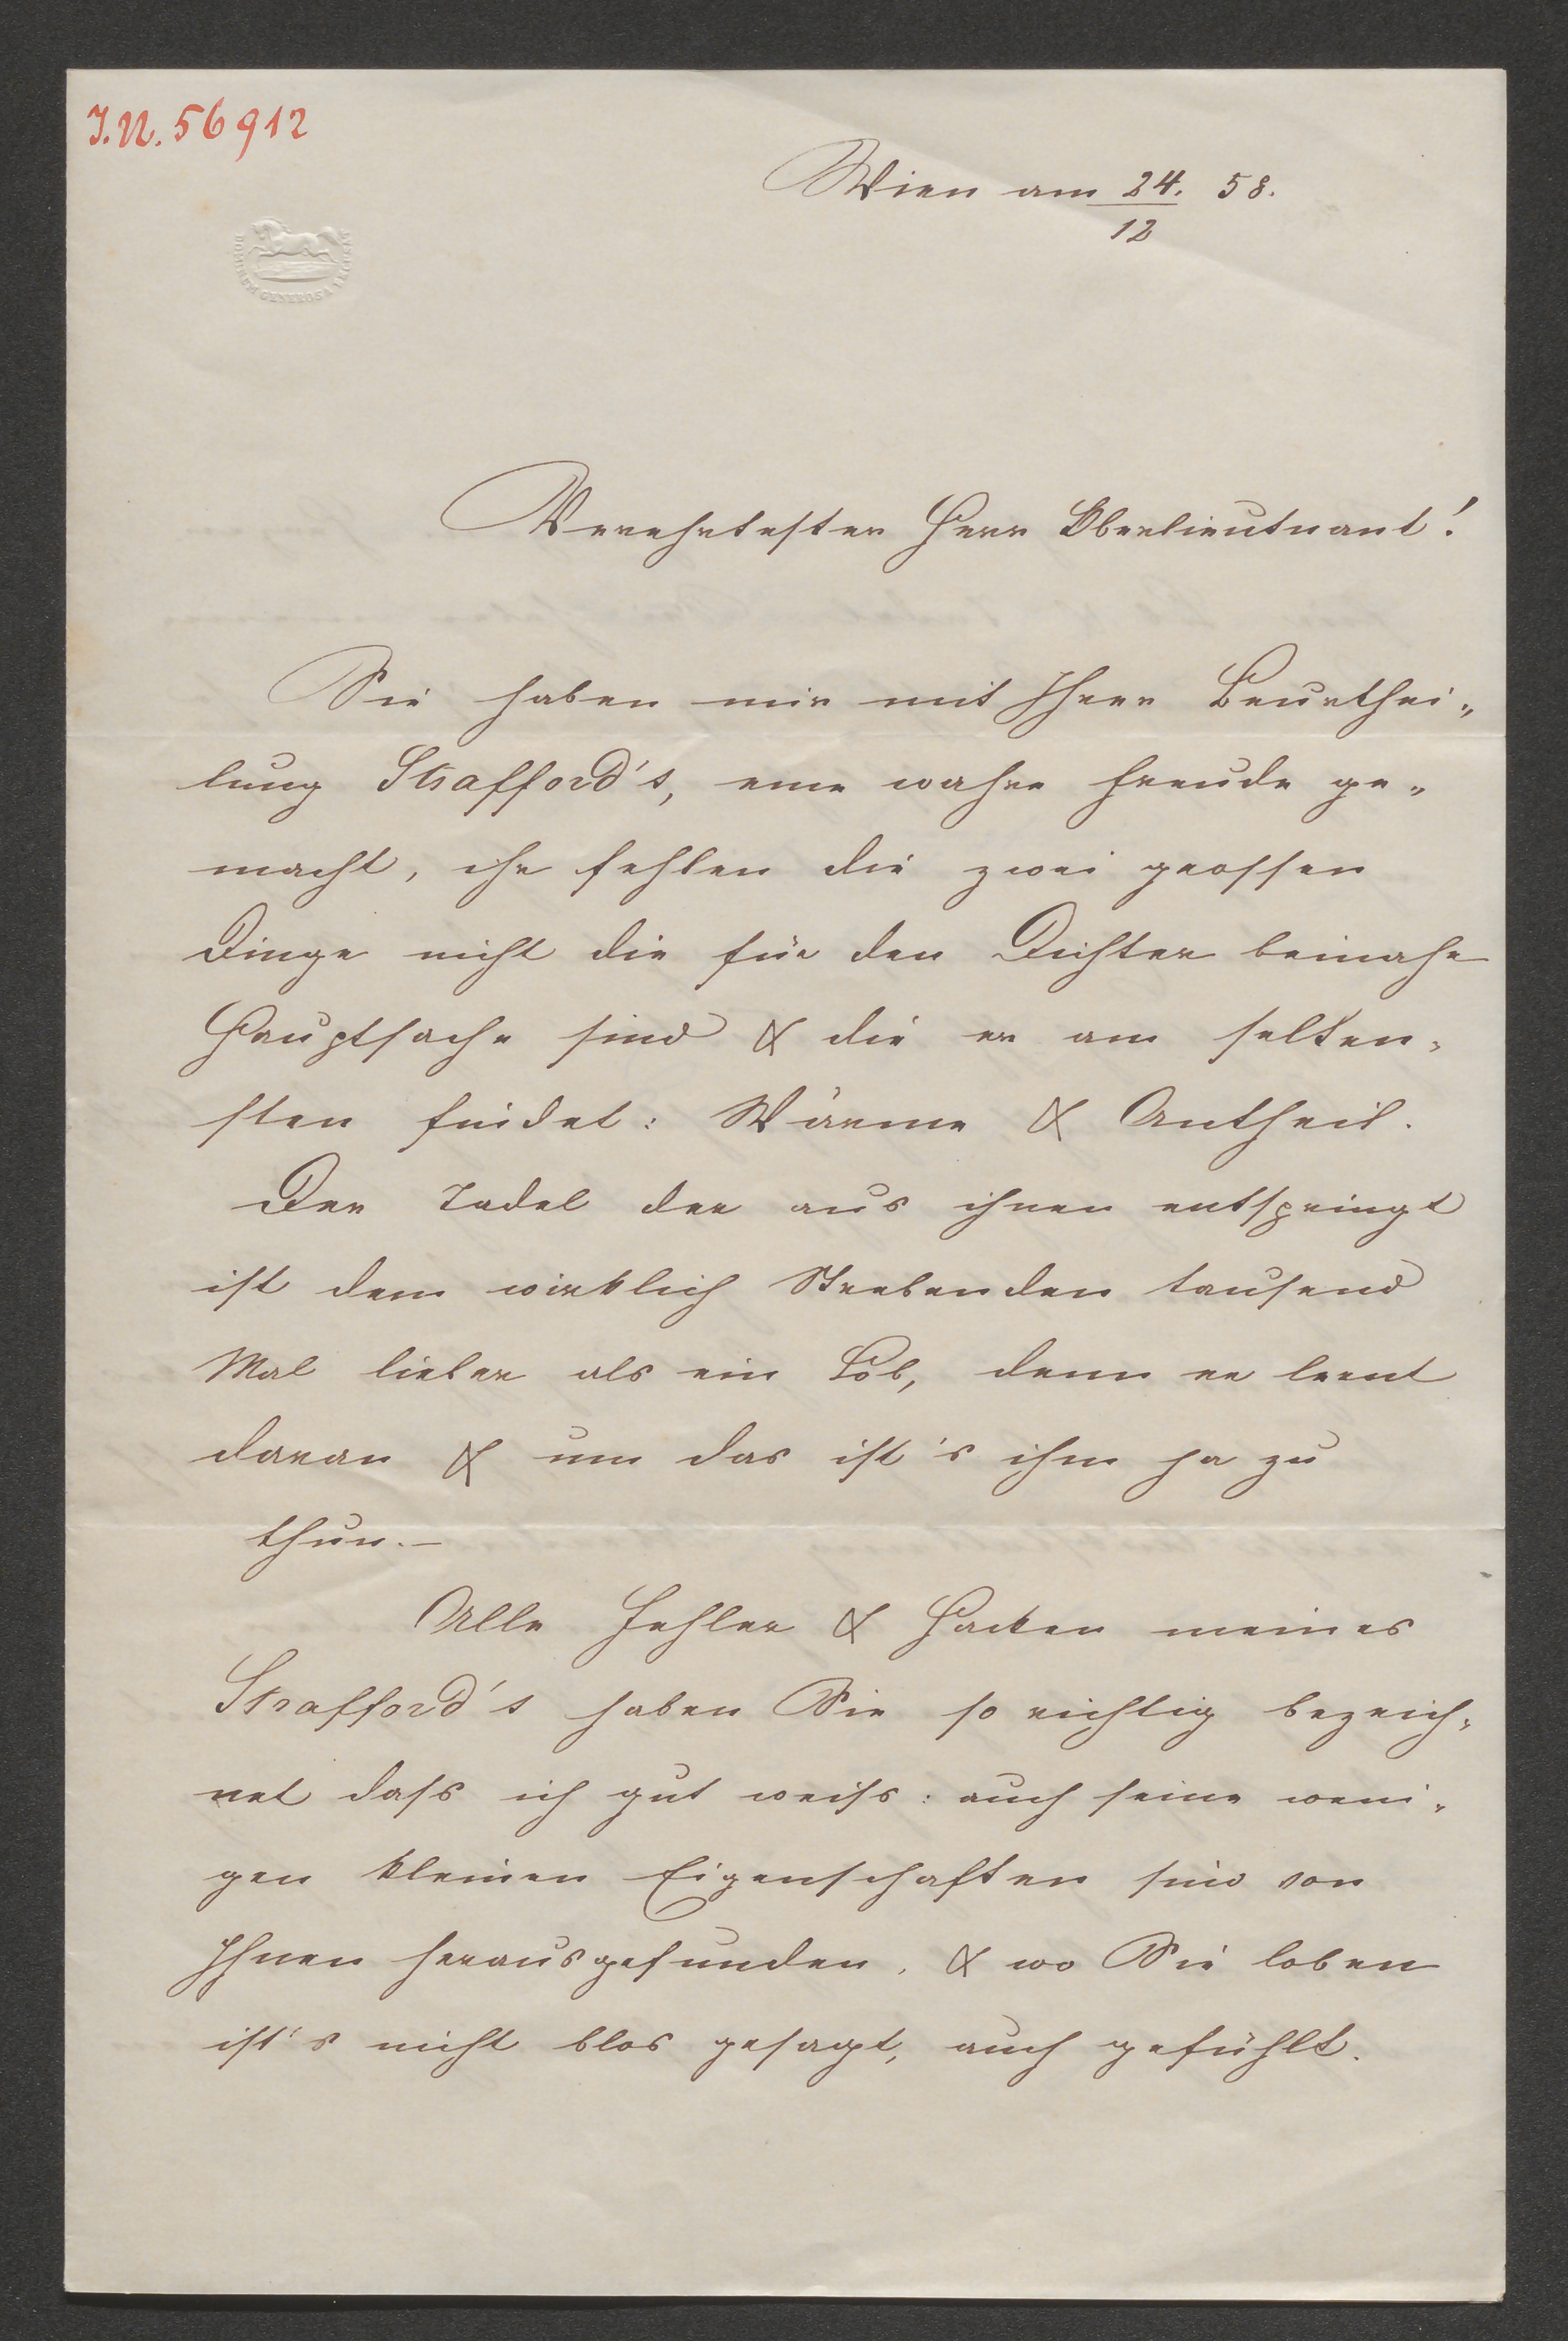 I.N. 56912
Wien am 24. 58.
12
GENEROSA
Verehrtester Herr Oberlieutnant!
Sie haben mir mit Ihrer Beurthei„
lung Strafford's, eine wahre Freude ge„
macht, ihr fehlen die zwei grossen
Dinge nicht die für den Dichter beinahe
Hauptsache sind & die er am selten„
sten findet: Wärme & Antheil.
Der Tadel der aus ihnen entspringt
ist dem wirklich Strebenden tausend
Mal lieber als ein Lob, denn er lernt
daran & um das ist's ihm ja zu
thun.–
Alle Fehler & Hacken meines
Strafford's haben Sie so richtig bezeich„
net dass ich gut weiss: auch seine weni„
gen kleinen Eigenschaften sind von
Ihnen herausgefunden, & wo Sie loben
ist's nicht blos gesagt, auch gefühlt.